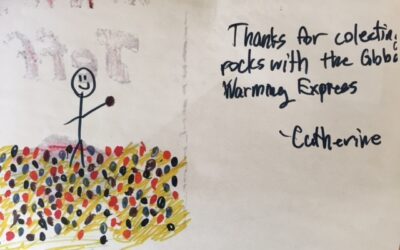 Jeff
Thanks for colecting
rocks with the Global
Warming Express
~Catherine